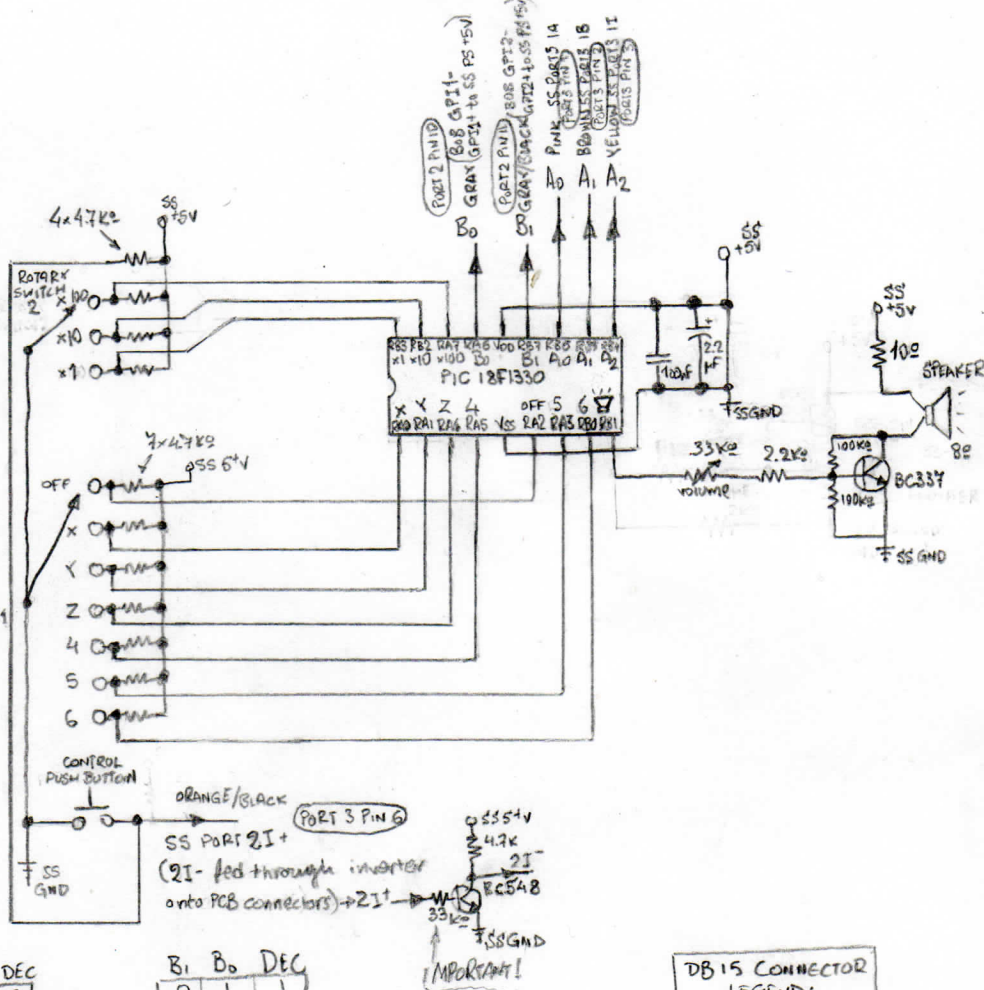 PORT 2 PIN 10
BOB GPI1-
GRAY (GPI1+ to SS PS +5V)
PORT 2 PIN 11
(BOB GPI2-
GRAY/BLACK GPI2+ to SS PS +5V)
PINK SS PORT3 1A
PORT3 PIN 1
BROWN SS PORT3 1B
PORT3 PIN 2
YELLOW SS PORT3 1I
PORT3 PIN 3
B0 B1 A0 A1 A2
4x4.7KΩ
SS
+5V
ROTARY
SWITCH
2
x100
x10
x1
RB3 RB2 RA7 RA6 VDD RB7 RB6 RB5 RB4
x1 x10 x100 B0 B1 A0 A1 A2
PIC 18F1330
X Y Z 4 OFF 5 6
RA0 RA1 RA4 RA5 VSS RA2 RA3 RB0 RB1
SS
+5V
100nF
+
2.2
µF
SSGND
SS
+5V
10Ω
SPEAKER
8Ω
33KΩ
VOLUME
2.2KΩ
100KΩ
100KΩ
BC337
SS GND
7x4.7KΩ
SS 5+V
OFF
X
Y
Z
4
5
6
1
CONTROL
PUSH BUTTON
SS
GND
ORANGE/BLACK
PORT 3 PIN 6
SS PORT 2I+
(2I- fed through inverter
onto PCB connectors)→2I+
SS5+V
4.7K
2I-
BC548
33KΩ
SSGND
IMPORTANT!
DEC
B1 B0 DEC
0 1 1
DB15 CONNECTOR
LEGEND: